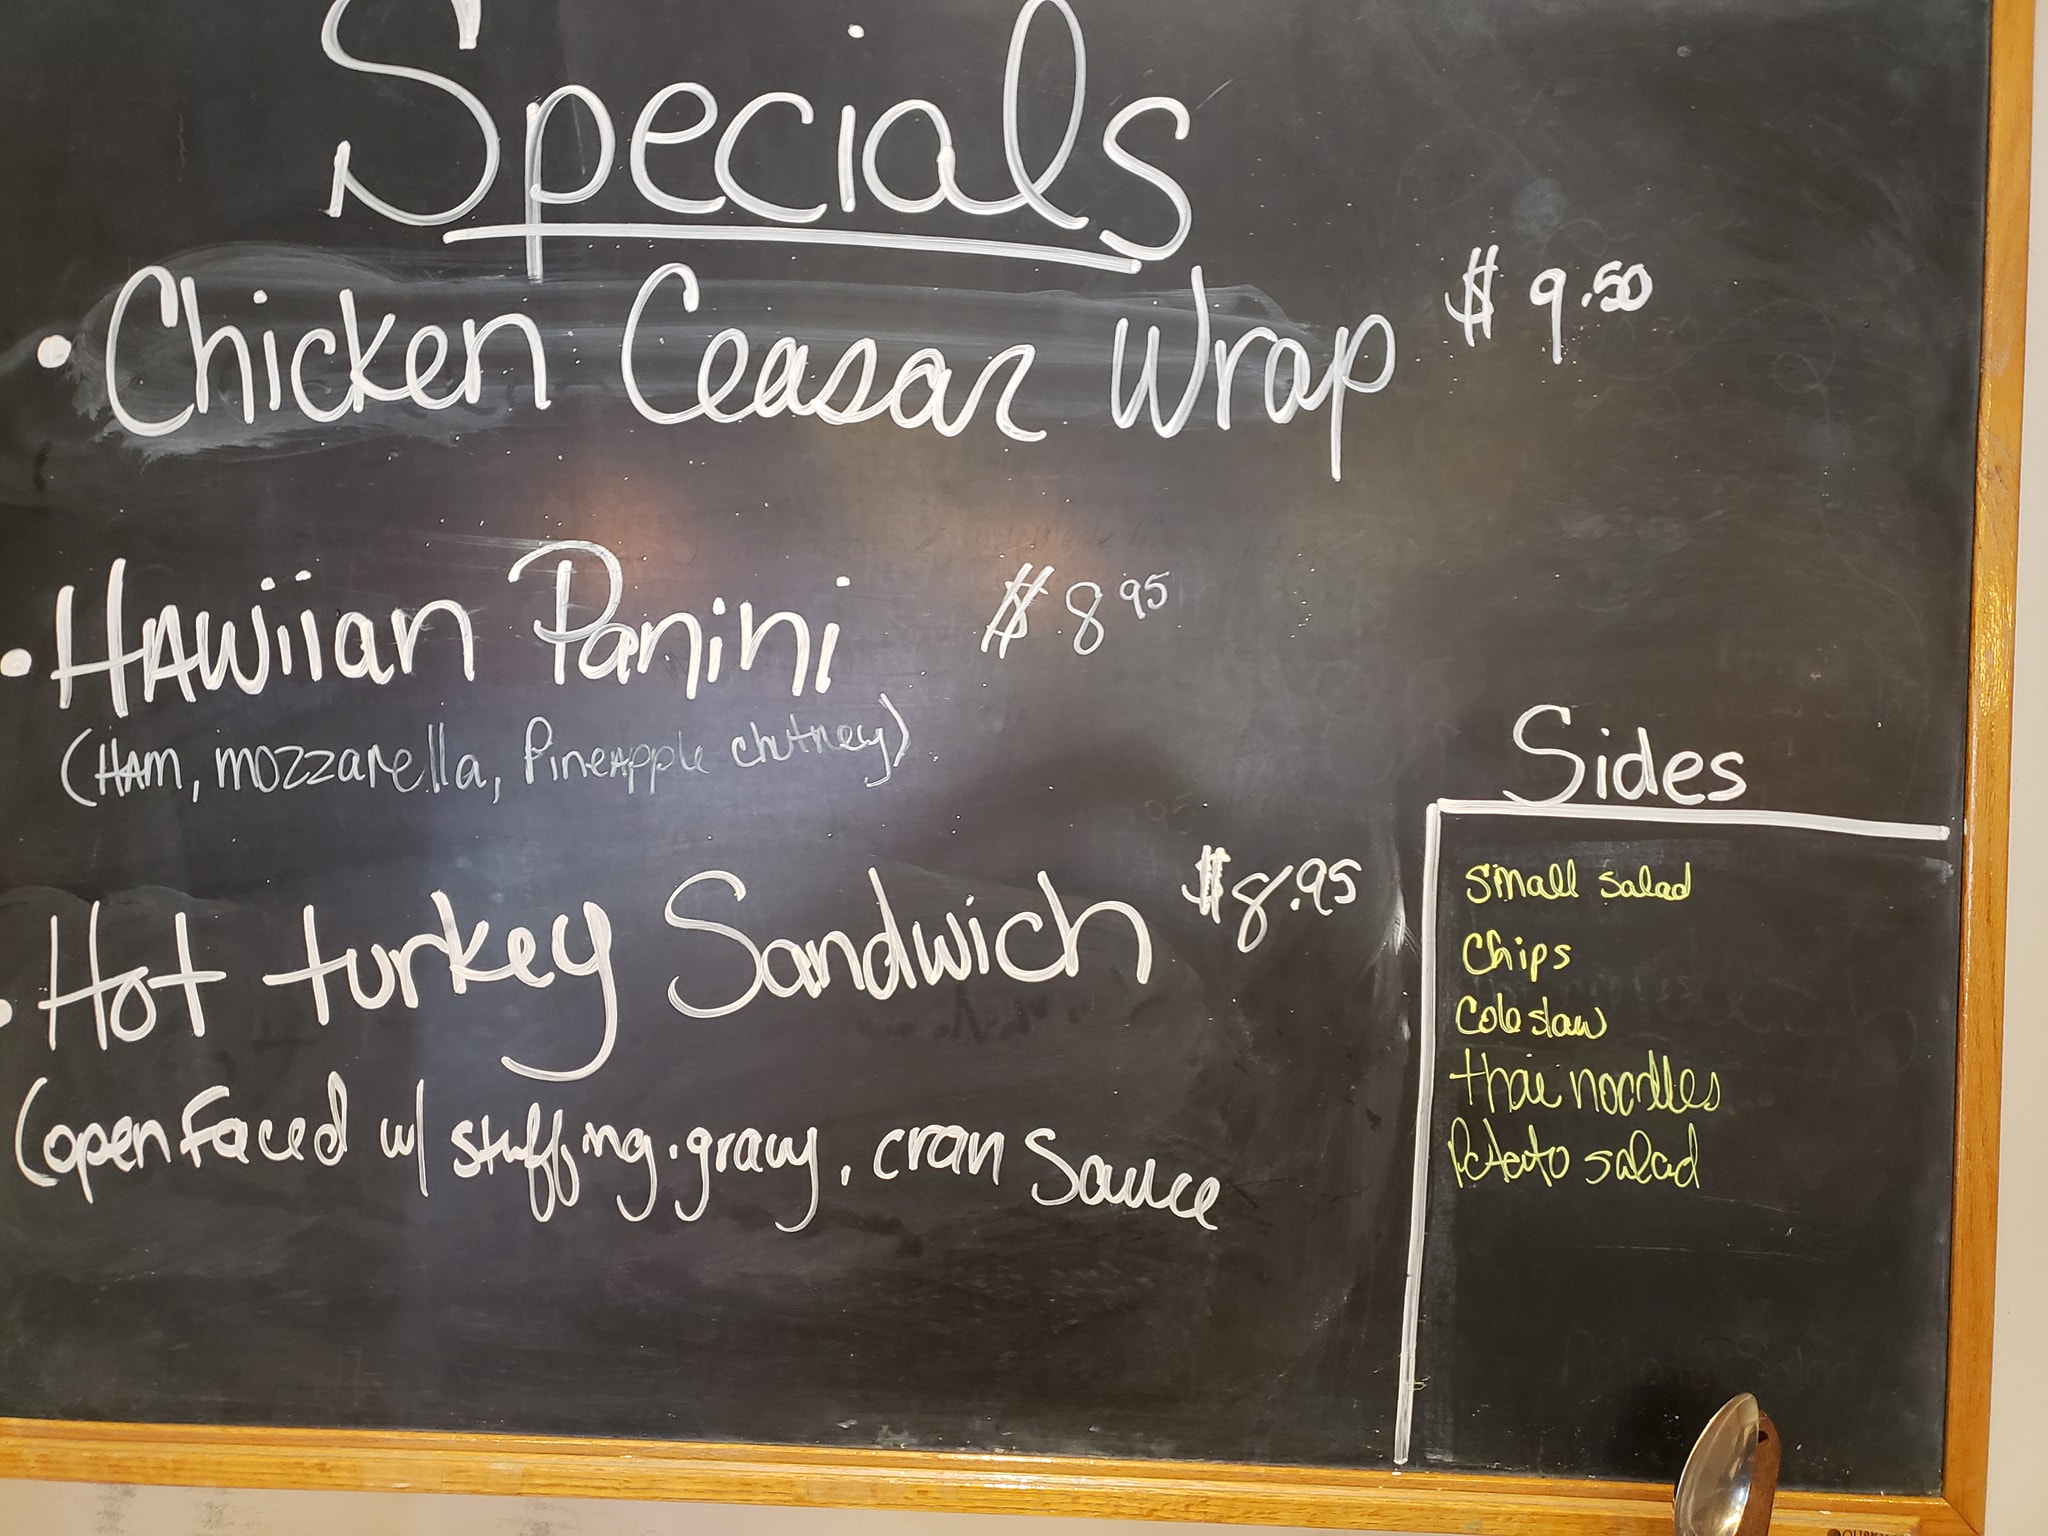 Specials
• Chicken Ceasar Wrap $9.50
• HAwiian Panini $8 95
(HAM, mozzarella, PineApple chutney)
• Hot turkey Sandwich $8.95
(open Faced w/ stuffing. gravy, cran Sauce
Sides
small salad
Chips
Cole slaw
thai noodles
Potato salad